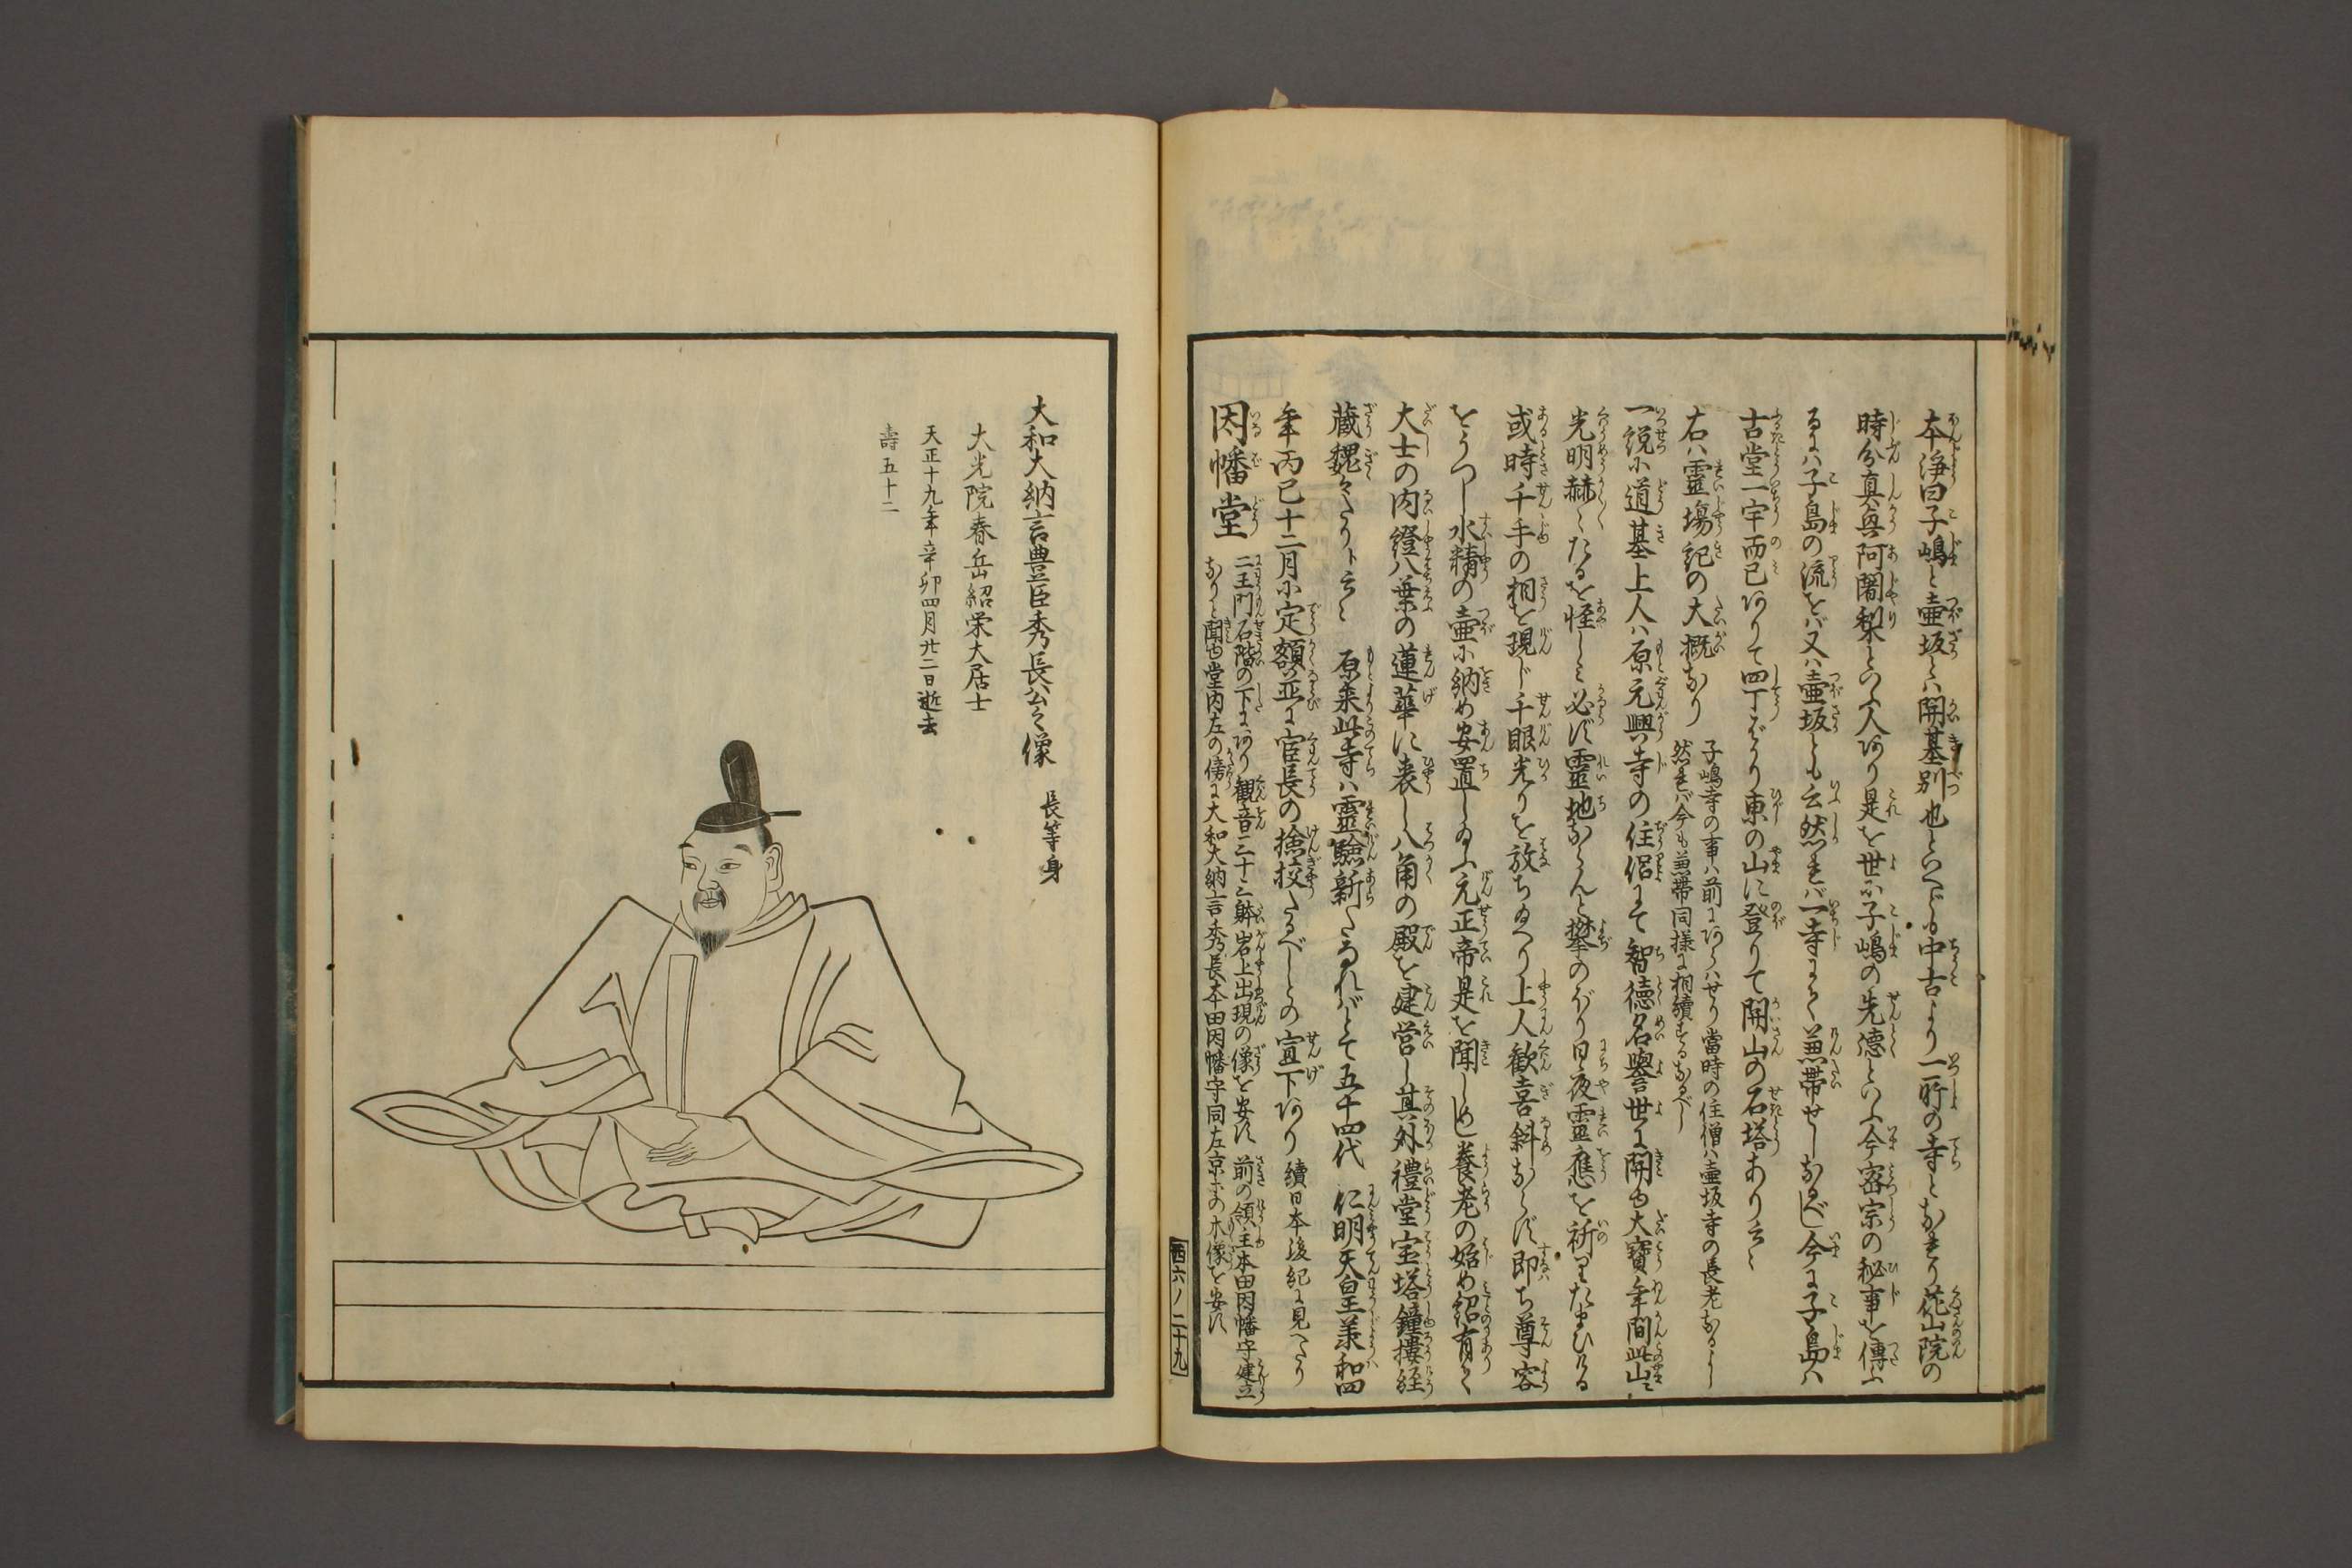 本浄曰子嶋と壺坂とハ開基別也といへども中古より一所の寺となれり花山院の
時分真興阿闍梨といふ人あり是を世に子嶋の先徳といふ今密宗の秘事を傳ふ
るにハ子島の流をバ又ハ壺坂とも云然れバ一寺にて兼帯せしなるべし今に子島ハ
古堂一宇而已ありて四丁ばかり東の山に登りて開山の石塔あり云々
右ハ霊場記の大概なり
子嶋寺の事ハ前にあらハせり當時の住僧ハ壺坂寺の長老なるよし
然れバ今も兼帯同様に相續するなるべし
一説に道基上人ハ原元興寺の住侶にて智徳名譽世に聞ゆ大寶年間此山に
光明赫々たるを怪しミ必ず霊地ならんと攀のぼり日夜霊應を祈りたまひける
或時千手の相を現じ千眼光りを放ち給へり上人歓喜斜ならず即ち尊容
をうつし水精の壺に納め安置し給ふ元正帝是を聞しめし養老の始め紹有て
大士の内證八葉の蓮華に表し八角の殿を建営し其外禮堂宝塔鐘樓経
蔵巍々たりト云々　原来此寺ハ霊驗新たなれバとて五十四代　仁明天皇羕和四
年丙巳十二月に定額並に官長の撿挍たるべしとの宣下あり　續日本後紀に見へたり
因幡堂
二王門石階の下にあり観音三十三躰岩上出現の像を安ず　前の領主本田因幡守建立
なりと聞ゆ堂内左の傍に大和大納言秀長本田因幡守同左京亮の木像を安ず
西六ノ二十九
大和大納言豊臣秀長公之像　長等身
大光院春岳紹栄大居士
天正十九年辛卯四月廿二日逝去
壽五十二